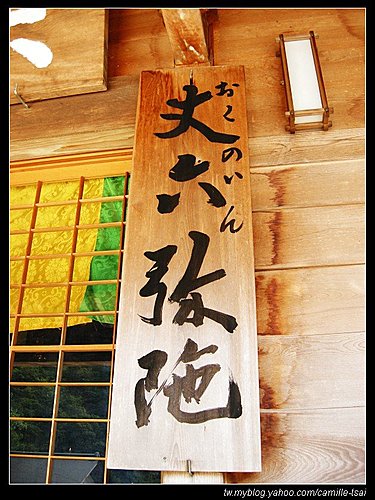 丈六弥陀
おくのいん
tw.myblog.yahoo.com/camille-tsai